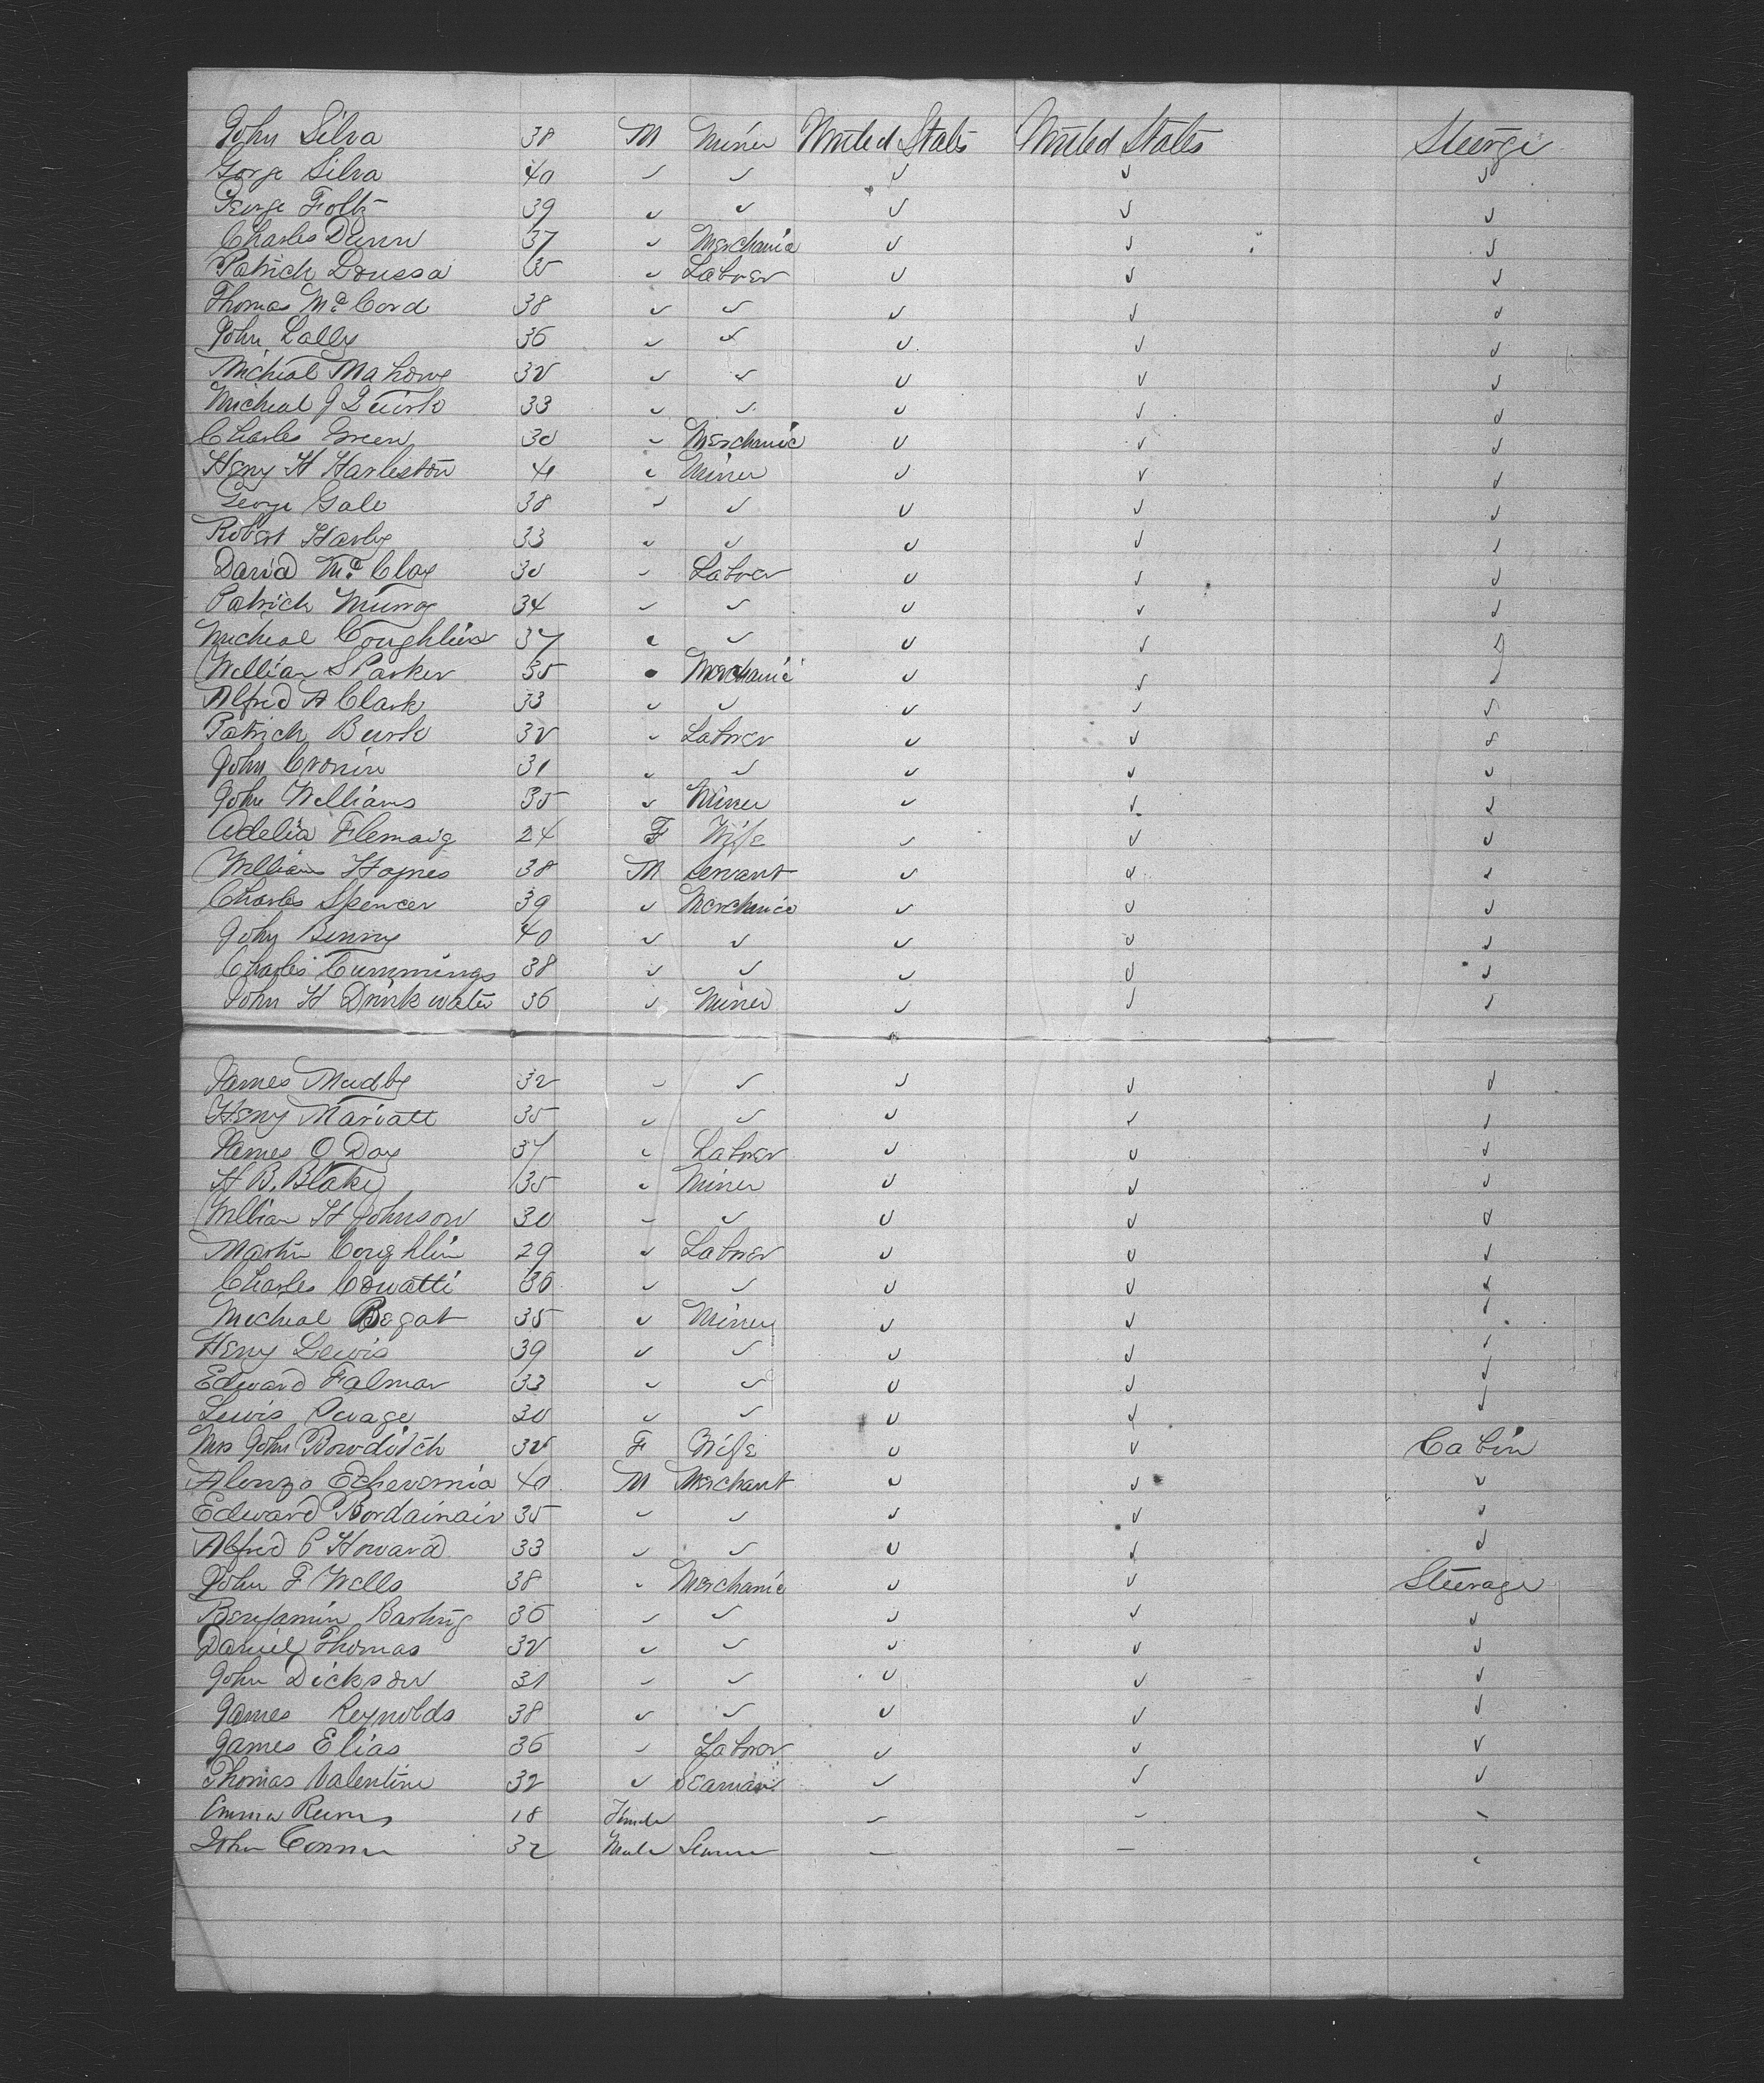 John Silva 38 M Miner United States United States Steerge
Gorge Silva 40 " " " " "
George Foltz 39 " " " " "
Charles Dunn 37 " Merchanic " " "
Patrick Doussa 35 " Labrer " " "
Thomas McCord 38 " " " " "
John Lally 36 " " " " "
Micheal Mahony 32 " " " " "
Micheal J Quirk 33 " " " " "
Charles Green 30 " Merchanic " " "
Heny H Harleston 41 " Miner " " "
George Gale 38 " " " " "
Robert Harley 33 " " " " "
David McCloy 30 " Labrer " " "
Patrick Murroy 34 " " " " "
Micheal Coughlin 37 " " " " "
William S Parker 35 " Merchanic " " "
Alfred A Clark 33 " " " " "
Patrick Burk 32 " Labrer " " "
John Cronin 31 " " " " "
John Williams 35 " Miner " " "
Adelia Flemaig 24 F Wife " " "
William Haynes 38 M Servant " " "
Charles Spencer 39 " Merchanic " " "
John Binny 40 " " " " "
Charles Cummings 38 " " " " "
John H Drinkwater 36 " Miner " " "
James Mudby 32 " " " " "
Heny Mariatt 35 " " " " "
James O Day 37 " Labrer " " "
H B. Blake 35 " Miner " " "
William H Johnson 30 " " " " "
Martin Coughlin 29 " Labrer " " "
Charles Cowatti 36 " " " " "
Micheal Begat 35 " Miner " " "
Heny Lewis 39 " " " " "
Edward Falmar 33 " " " " "
Lewis 30 " " " " "
Mrs John Bowditch 32 F Wife " " Cabin
Alonzo Echeverria 40 M Merchant " " "
Edward Bordainair 35 " " " " "
Alfred P Howard 33 " " " " "
John F Wells 38 " Merchanic " " Steerage
Benjamin Barling 36 " " " " "
Daniel Thomas 32 " " " " "
John Dickson 31 " " " " "
James Reynolds 38 " " " " "
James Elias 36 " Labrer " " "
Thomas Valentine 32 " Seaman " " "
Emma 18 Female " " "
John Conner 32 Male " " "